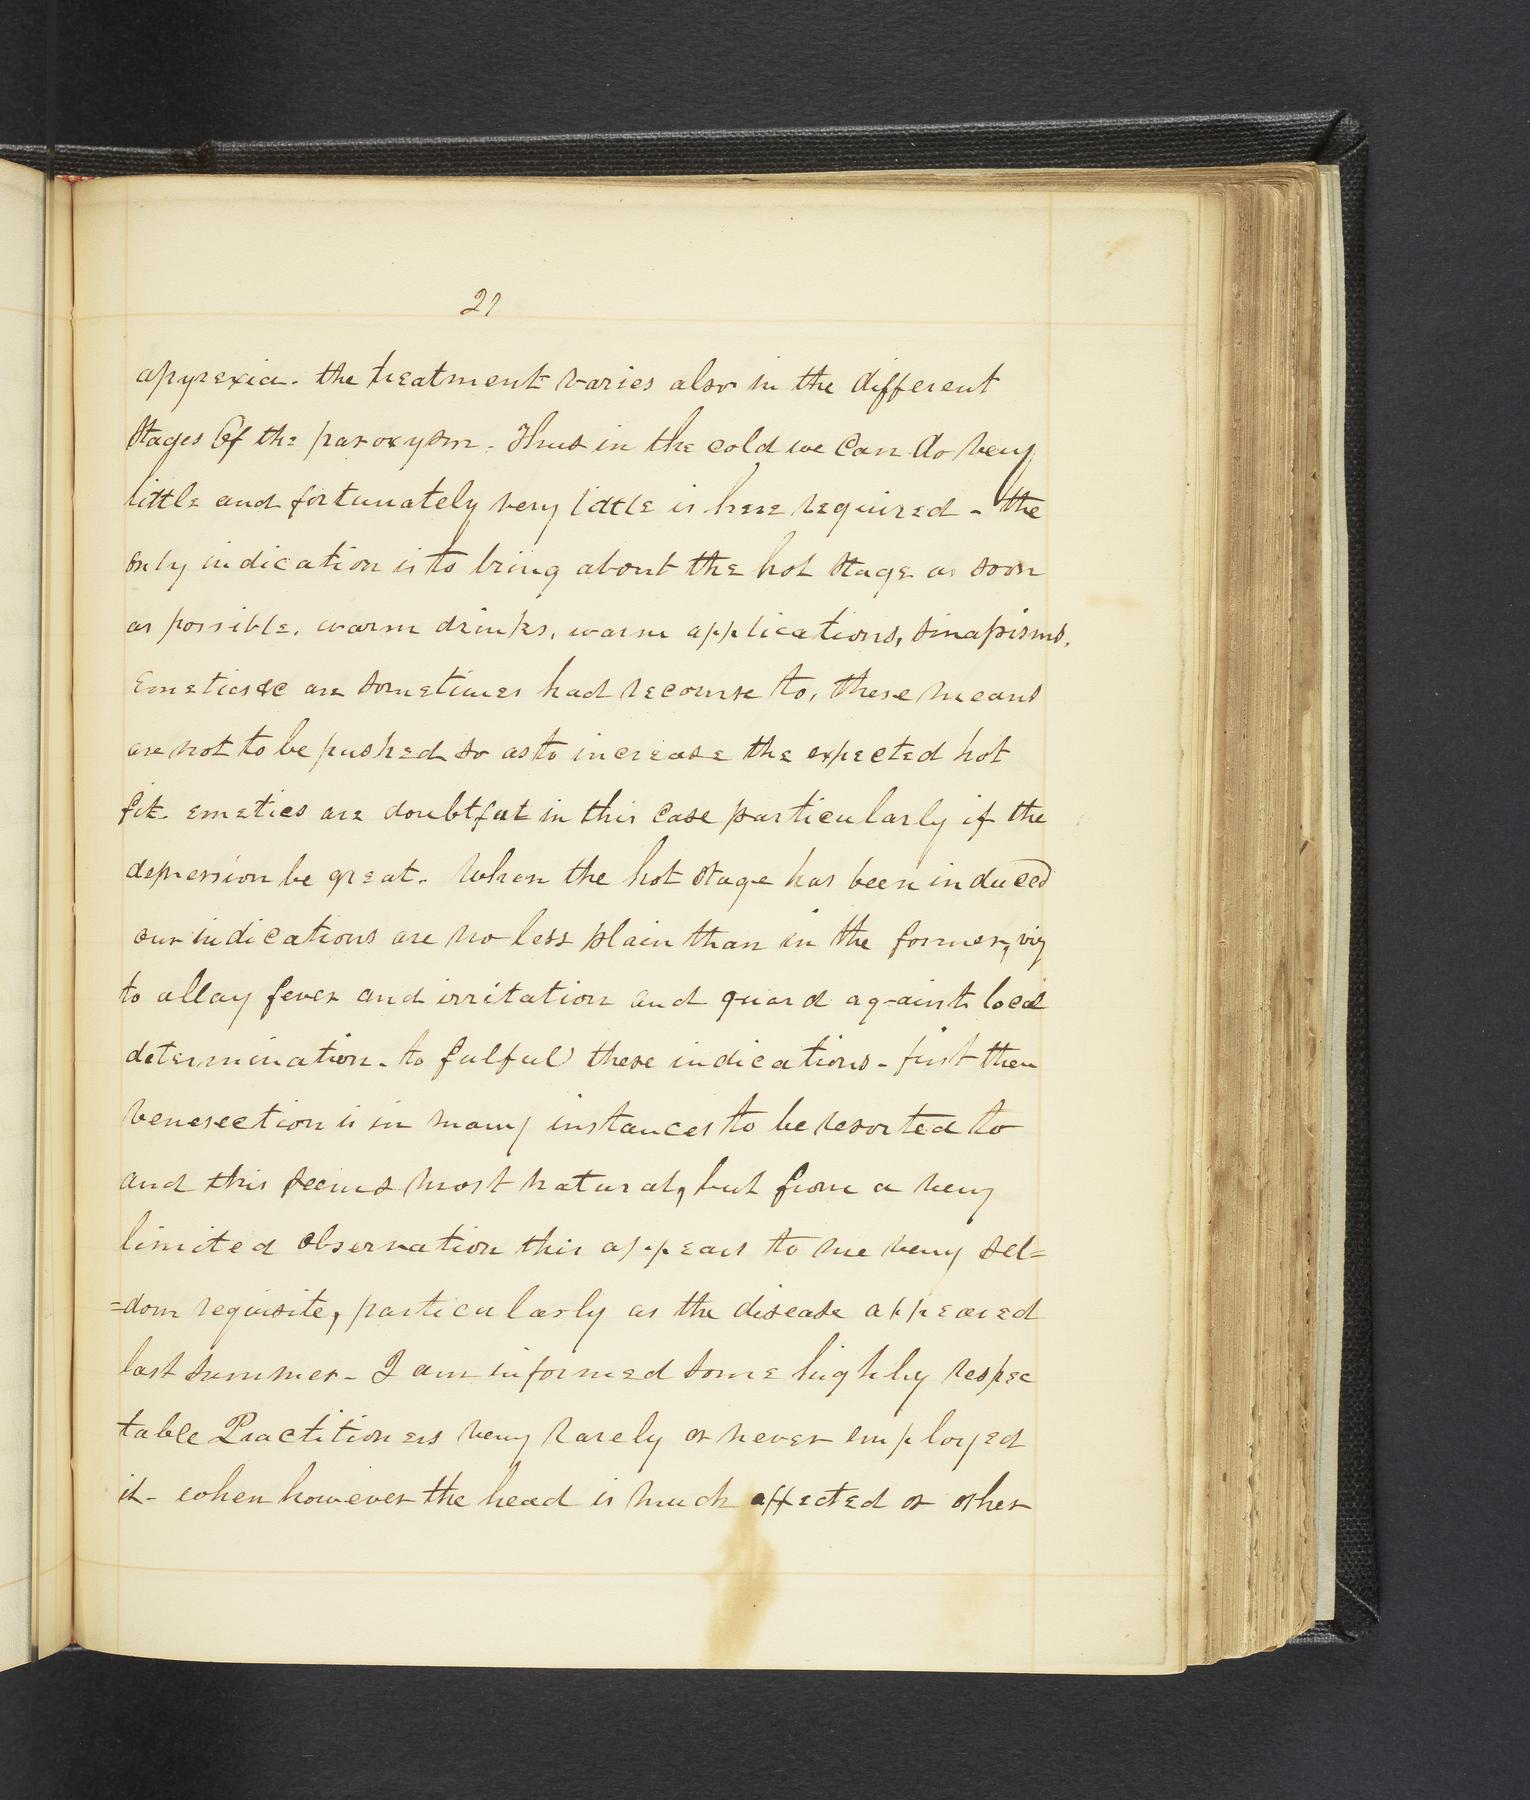 21
apyrexia. the treatment varies also in the different
stages Of the paroxysm. Thus in the cold we Can do very
little and fortunately very little is here required - the
only indication is to bring about the hot stage as soon
as possible. warm drinks, warm applications, sinapisms.
Emetics &c are sometimes had recourse to, these means
are not to be pushed so as to increase the expected hot
fit. emetics are doubtful in this case particularly if the
depression be great. When the hot stage has been induced
our indications are no less plain than in the former, viz
to allay fever and irritation and guard against local
determination. to fulful these indications - first then
venesection is in many instances to be resorted to
and this seems most natural, but from a very
limited observation this appears to me very sel=
=dom requisite, particularly as the disease appeared
last summer - I am informed some highly respec
table Practitioners very rarely or never employed
it - when however the head is much affected or other